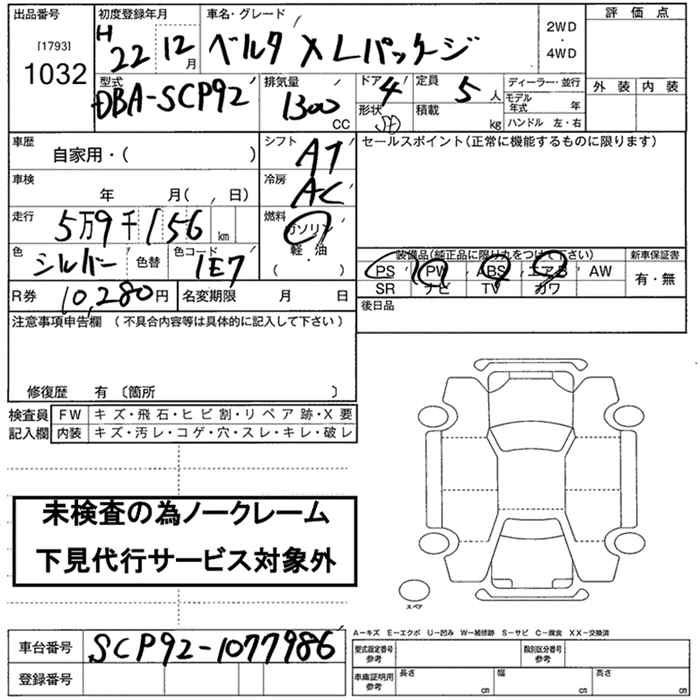 出品番号 初度登録年月 車名・グレード 2WD・4WD 評価点
[1793]
1032 H 22 12 月 ベルタ X Lパッケージ
型式 DBA-SCP92 排気量 1300 CC ドア 4 形状 SD 定員 5 人 積載 kg
ディーラー・並行
モデル年式 年
ハンドル 左・右
外装 内装
車歴 自家用・( ) シフト AT セールスポイント(正常に機能するものに限ります)
車検 年 月( 、 日) 冷房 AC
走行 5万9千156 km 燃料 ガソリン・軽・油・( )
色 シルバー 色替 色コード 1E7
装備品(純正品に限り丸をつけて下さい) 新車保証書
PS PW ABS エアB AW 有・無
SR ナビ TV カワ
R券 10,280円 名変期限 月 日 後日品
注意事項申告欄 (不具合内容等は具体的に記入して下さい)
修復歴 有 〔箇所 〕
検査員 FW キズ・飛石・ヒビ割・リペア跡・X要
記入欄 内装 キズ・汚レ・コゲ・穴・スレ・キレ・破レ
未検査の為ノークレーム
下見代行サービス対象外
スペア
A−キズ E−エクボ U−凹み W−補修跡 S−サビ C−腐食 XX−交換済
車台番号 SCP92-1077986 型式指定番号 参考 類別区分番号 参考
登録番号 車庫証明用 参考 長さ cm 幅 cm 高さ cm